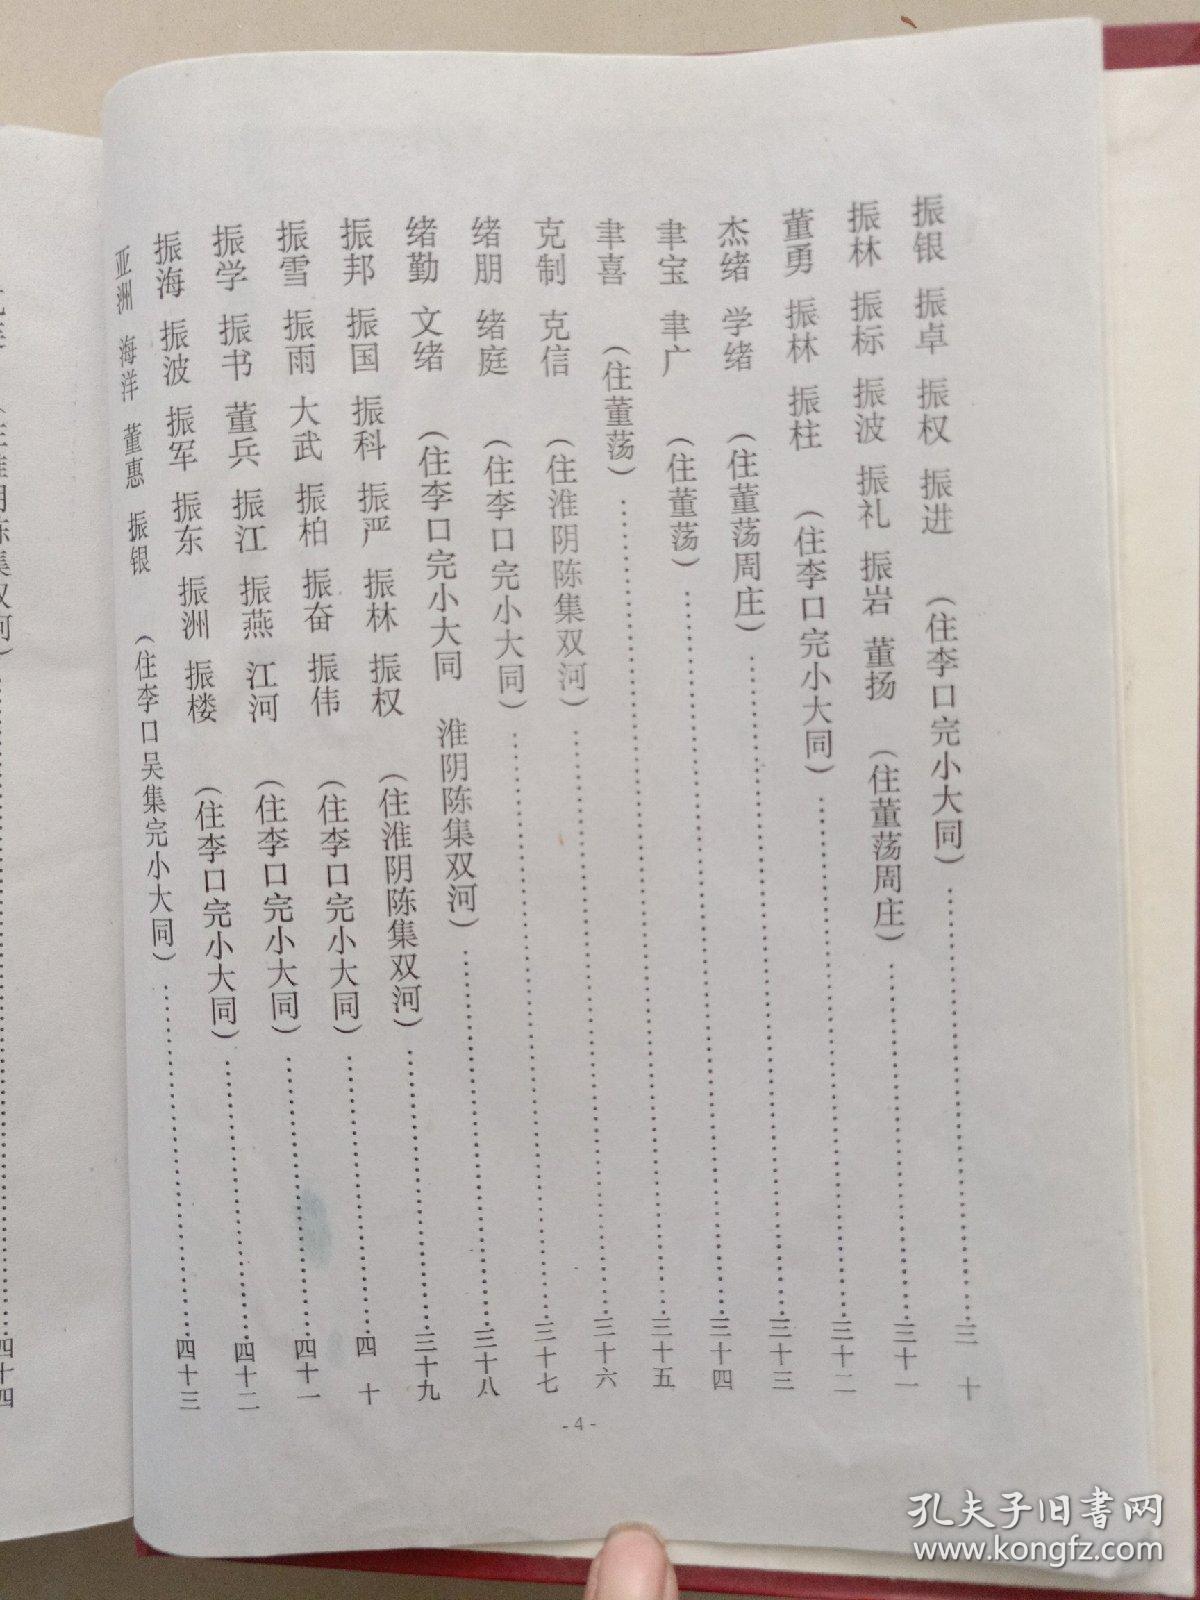 振银 振卓 振权 振进 (住李口完小大同)……三十
振林 振标 振波 振礼 振岩 董扬 (住董荡周庄)……三十一
董勇 振林 振柱 (住李口完小大同)……三十二
杰绪 学绪 (住董荡周庄)……三十三
聿宝 聿广 (住董荡)……三十四
聿喜 (住董荡)……三十五
克制 克信 (住淮阴陈集双河)……三十六
绪朋 绪庭 (住李口完小大同)……三十七
绪勤 文绪 (住李口完小大同 淮阴陈集双河)……三十八
振邦 振国 振科 振严 振林 振权 (住淮阴陈集双河)……三十九
振雪 振雨 大武 振柏 振奋 振伟 (住李口完小大同)……四十
振学 振书 董兵 振江 振燕 江河 (住李口完小大同)……四十一
振海 振波 振军 振东 振洲 振楼 (住李口完小大同)……四十二
亚洲 海洋 董惠 振银 (住李口吴集完小大同)……四十三
淮阴陈集双河)……四十四
-4-
孔夫子旧书网
www.kongfz.com